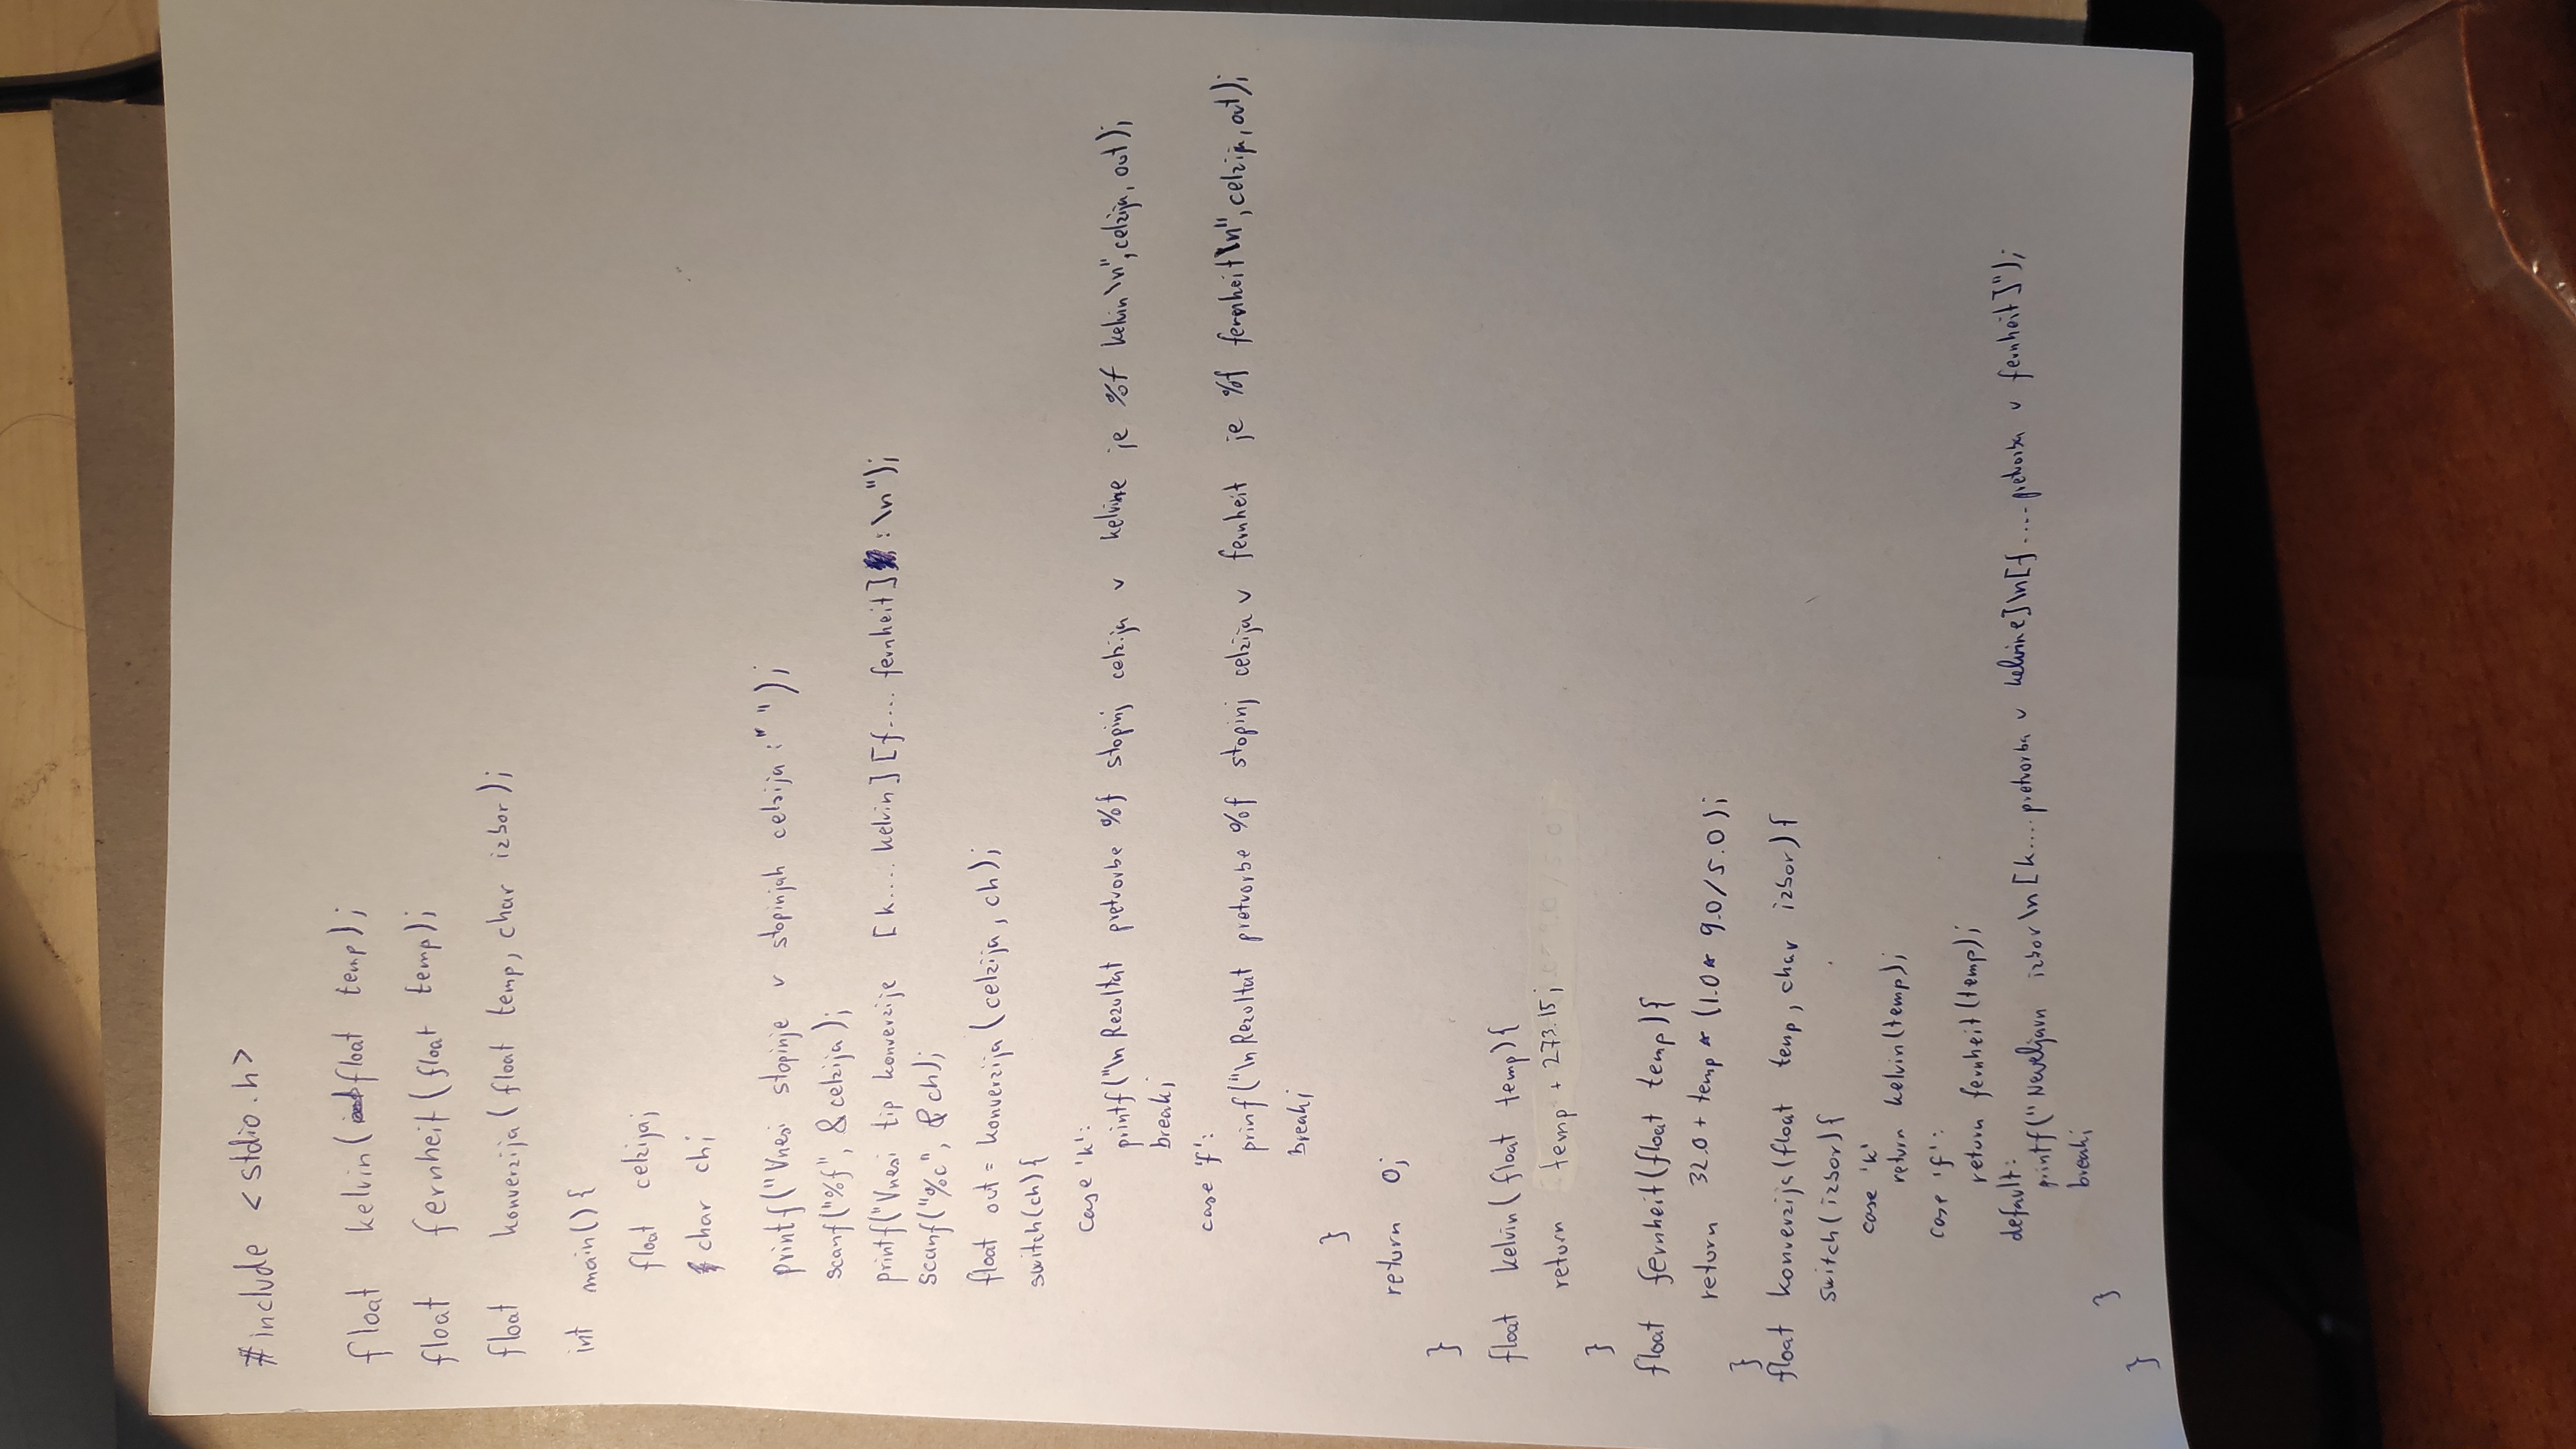 #include <stdio.h>
float kelvin(float temp);
float fernheit(float temp);
float konverzija(float temp, char izbor);
int main(){
float celzija;
char ch;
printf("Vnesi stopinje v stopinjah celzija :" ");
scanf("%f", &celzija);
printf("Vnesi tip konverzije [k.... kelvin][f.... fernheit] : \n");
scanf("%c", &ch);
float out = konverzija(celzija, ch);
switch(ch){
case 'k':
printf("\n Rezultat pretvorbe %f stopinj celzija v kelvine je %f kelvin \n", celzija, out);
break;
case 'f':
prinf("\n Rezultat pretvorbe %f stopinj celzija v fernheit je %f fernheit \n", celzija, out);
break;
}
return 0;
}
float kelvin(float temp){
return temp + 273.15;
}
float fernheit(float temp){
return 32.0 + temp * (1.0 * 9.0/5.0);
}
float konverzija(float temp, char izbor){
switch(izbor){
case 'k'
return kelvin(temp);
case 'f':
return fernheit(temp);
default:
printf("Neveljavn izbor \n [k.... pretvorba v kelvine]\n[f .... pretvorba v fernheit]");
break;
}
}